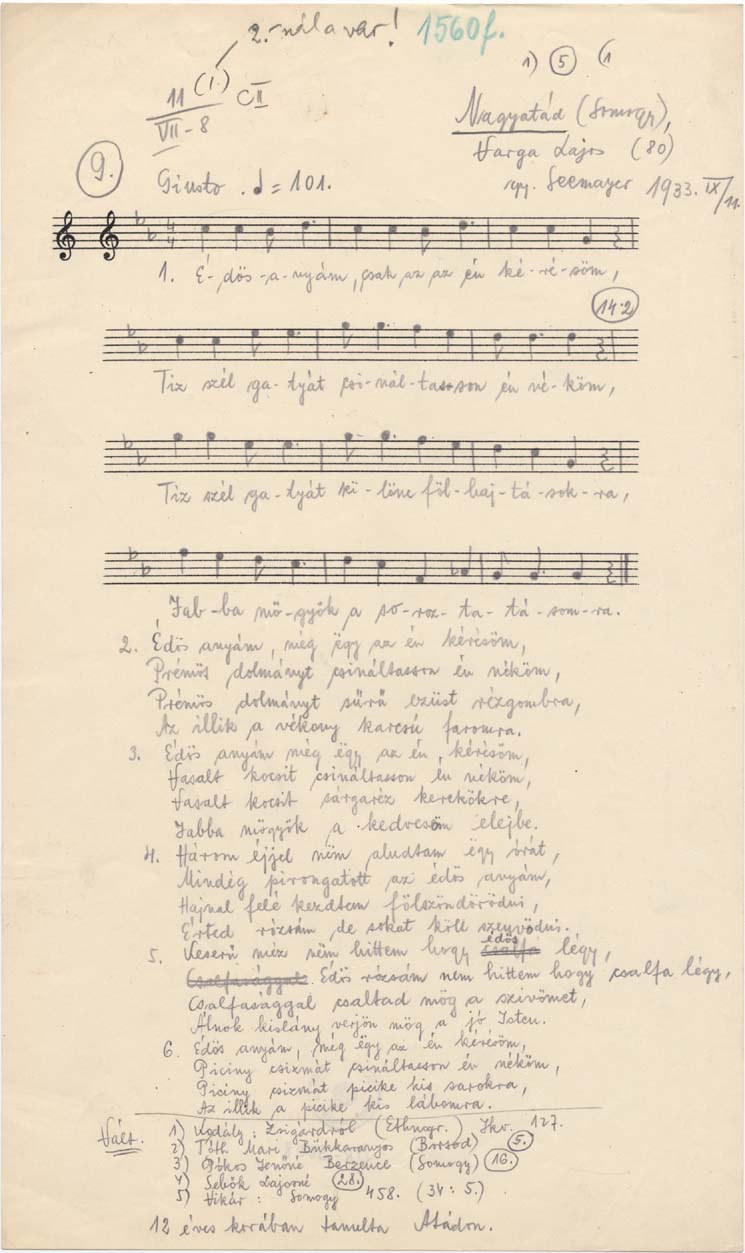 2.-nál a var! 1560f.
1) 5 (1
11 (1.) CII
VII - 8
Nagyatád (Somogy),
Varga Lajos (80)
gy. Seemayer 1933. IX/11.
9.
Giusto. = 101.
1. É-dös-a-nyám, csak az az én ké-ré-söm,
14:2
Tiz szél ga-tyát csi-nál-tasson én né-köm,
Tiz szél ga-tyát ki-lenc föl-haj-tá-sok-ra,
Jab-ba mö-gyök a so-roz-ta-tá-som-ra.
2. Édös anyám, még ëgy az én kérésöm,
Prémös dolmányt csináltasson én néköm,
Prémös dolmányt sürü ezüst rézgombra,
Az illik a vékony karcsú faromra.
3. Édös anyám még ëgy az én, kérésöm,
Vasalt kocsit csináltasson én néköm,
Vasalt kocsit sárgaréz kerekökre,
Jabba mögyök a kedvesöm elejbe.
4. Három éjjel nëm aludtam ëgy órát,
Mindég pirongatott az édös anyám,
Hajnal felé kezdtem fölszöndörödni,
Érted rózsám de sokat köll szenvödni.
édös
5. Keserü méz nëm hittem hogy csalfa légy,
Csalfasággat. Édös rózsám nem hittem hogy csalfa légy,
Csalfasággal csaltad mög a szivömet,
Álnok kislány verjön mög a jó Isten.
6. Édös anyám, még ëgy az én kérésöm,
Piciny csizmát csináltasson én néköm,
Piciny csizmát picike kis sarokra,
Az illik a picike kis lábomra.
Vált. 1) Kodály: Zsigárdról (Ethnogr.) Ikv. 127.
2) Tóth Mari Bükkaranyos (Borsod) 5.
3) Pókos Jenőné Berzence (Somogy) 16.
4) Sebők Lajosné 28.
5) Vikár: Somogy 458. (34: 5.)
12 éves korában tanulta Atádon.